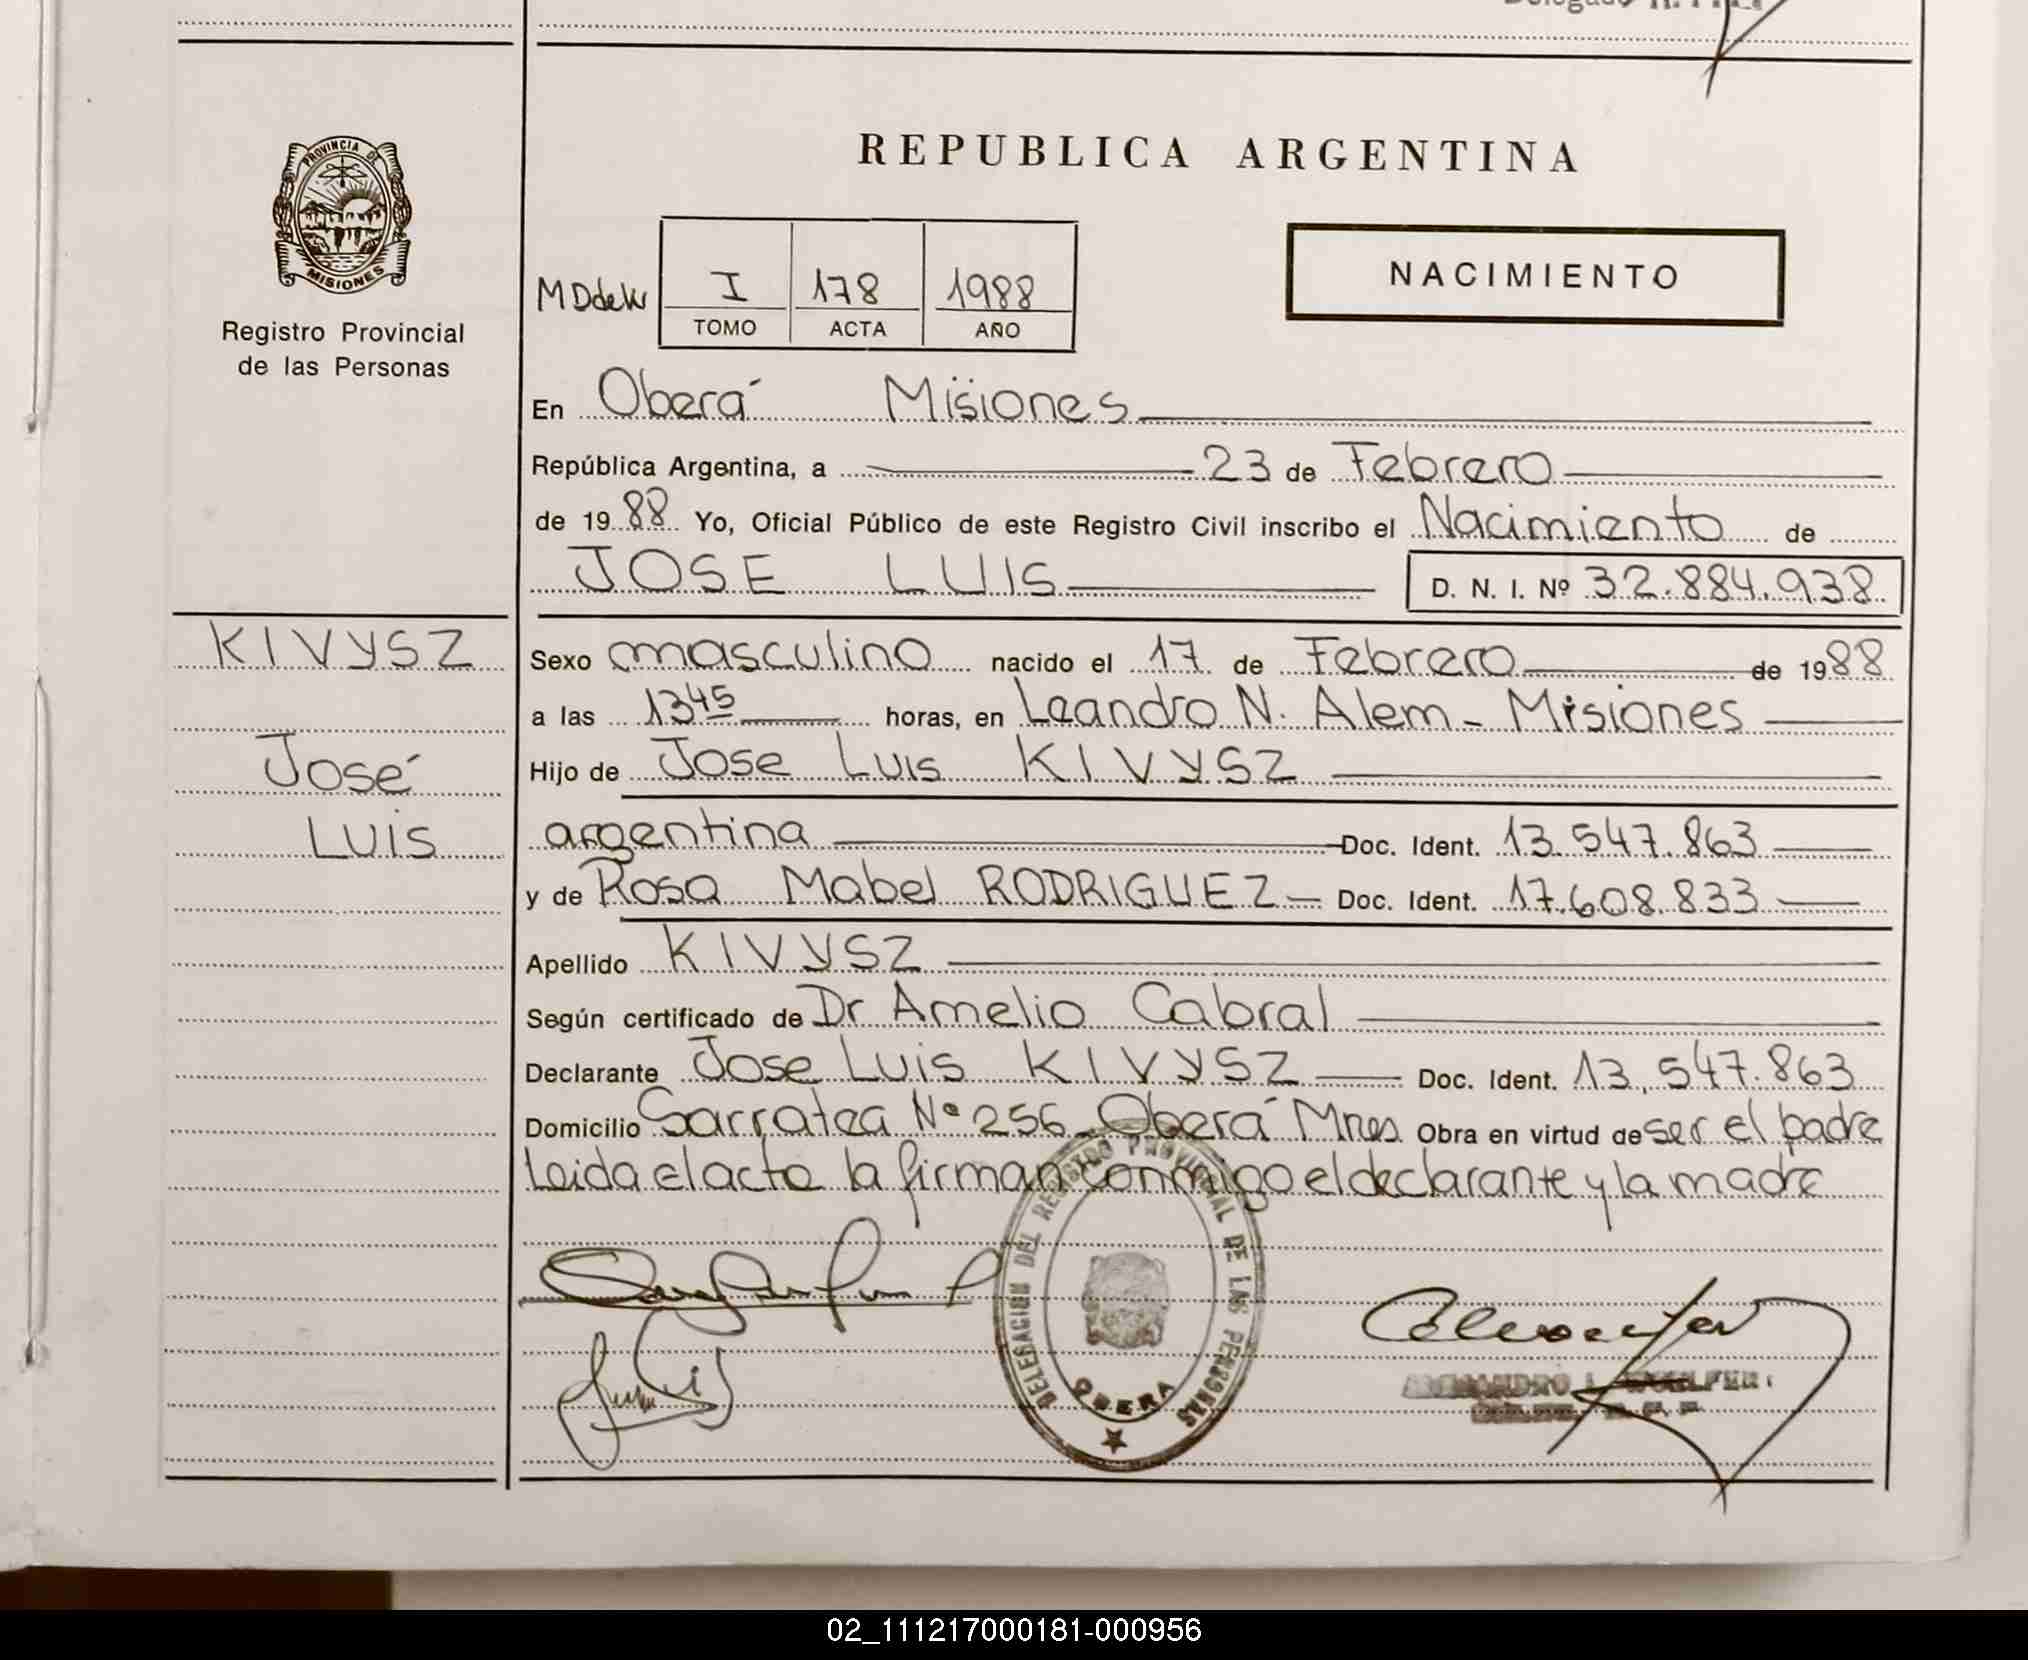 REPUBLICA ARGENTINA
PROVINCIA DE
MISIONES
Registro Provincial
de las Personas
I 178 1988
TOMO ACTA AÑO
NACIMIENTO
En Oberá Misiones
República Argentina, a 23 de Febrero
de 1988 Yo, Oficial Público de este Registro Civil inscribo el Nacimiento de
JOSE LUIS D. N. I. Nº 32.884.938
KIVYSZ
José
Luis
Sexo masculino nacido el 17 de Febrero de 1988
a las 13 45 horas, en Leandro N. Alem - Misiones
Hijo de Jose Luis KIVYSZ
argentina Doc. Ident. 13.547.863
y de Rosa Mabel RODRIGUEZ Doc. Ident. 17.608.833
Apellido KIVYSZ
Según certificado de Dr Amelio Cabral
Declarante Jose Luis KIVYSZ Doc. Ident. 13.547.863
Domicilio Sarratea Nº 256 Oberá Mnes Obra en virtud de ser el padre
Leida el acta la firman conmigo el declarante y la madre
DELEGACION DEL REGISTRO PROVINCIAL DE LAS PERSONAS
OBERA
02_111217000181-000956